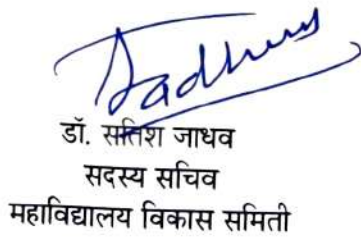 डॉ. सतिश जाधव
सदस्य सचिव
महाविद्यालय विकास समिती